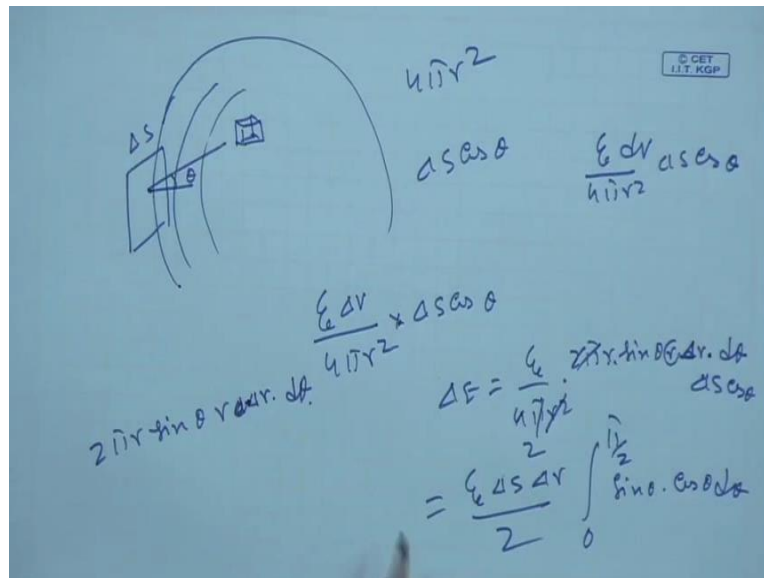 4πr²
© CET
I.I.T. KGP
ΔS
θ
ΔS cos θ
ε dV / 4πr² ΔS cos θ
ε ΔV / 4πr² × ΔS cos θ
2πr sin θ r Δr. dθ.
ΔE = ε / 4πr² . 2πr. sin θ r Δr. dθ
ΔS cos θ
2
= ε ΔS Δr / 2 ∫₀^{π/2} sin θ. cos θ dθ